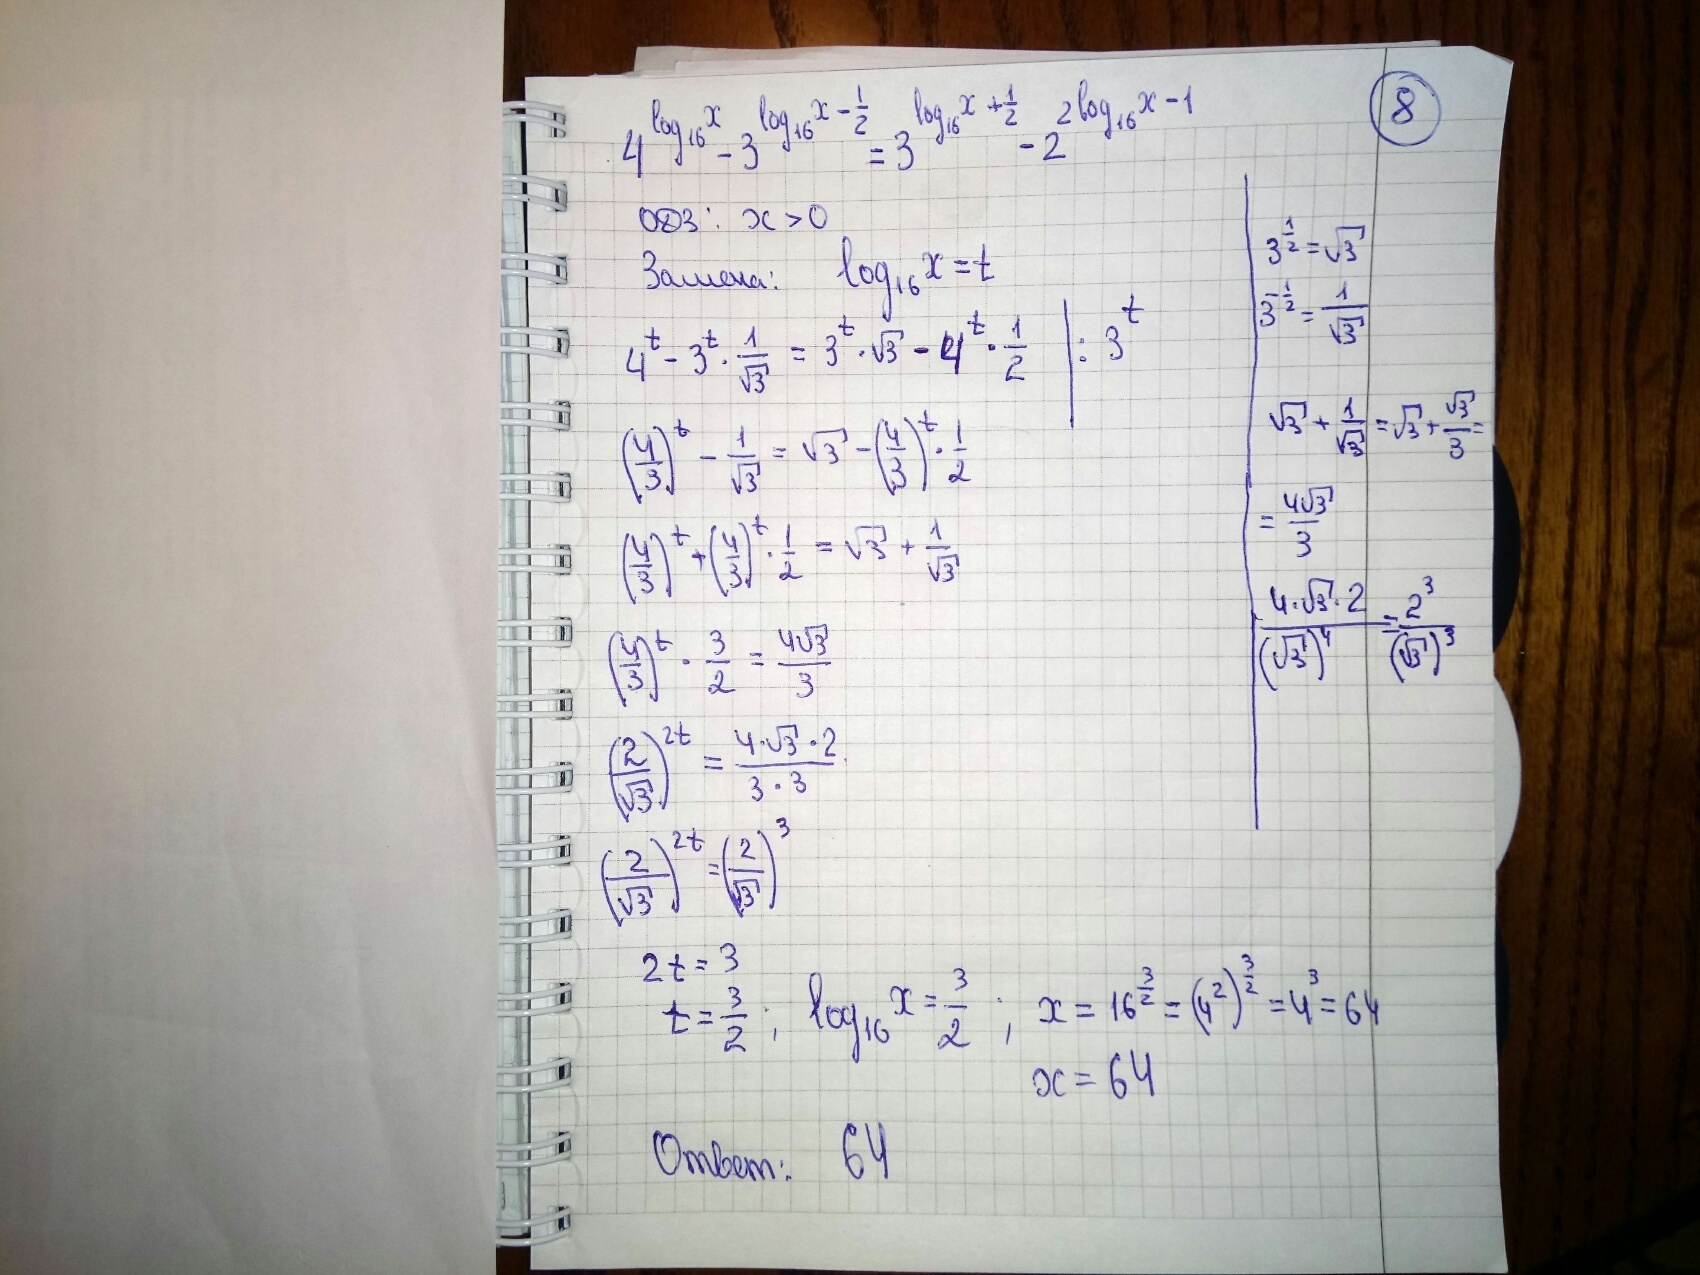 8
4^{log_{16} x} - 3^{log_{16} x - \frac{1}{2}} = 3^{log_{16} x + \frac{1}{2}} - 2^{2 log_{16} x - 1}
ОДЗ: x > 0
Замена: log_{16} x = t
4^t - 3^t · \frac{1}{√3} = 3^t · √3 - 4^t · \frac{1}{2} | : 3^t
(\frac{4}{3})^t - \frac{1}{√3} = √3 - (\frac{4}{3})^t · \frac{1}{2}
(\frac{4}{3})^t + (\frac{4}{3})^t · \frac{1}{2} = √3 + \frac{1}{√3}
(\frac{4}{3})^t · \frac{3}{2} = \frac{4√3}{3}
(\frac{2}{√3})^{2t} = \frac{4·√3·2}{3·3}
(\frac{2}{√3})^{2t} = (\frac{2}{√3})^3
2t = 3
t = \frac{3}{2}; log_{16} x = \frac{3}{2}; x = 16^{\frac{3}{2}} = (4^2)^{\frac{3}{2}} = 4^3 = 64
x = 64
Ответ: 64
3^{\frac{1}{2}} = √3
3^{-\frac{1}{2}} = \frac{1}{√3}
√3 + \frac{1}{√3} = √3 + \frac{√3}{3} =
= \frac{4√3}{3}
\frac{4·√3·2}{(√3)^4} = \frac{2^3}{(√3)^3}